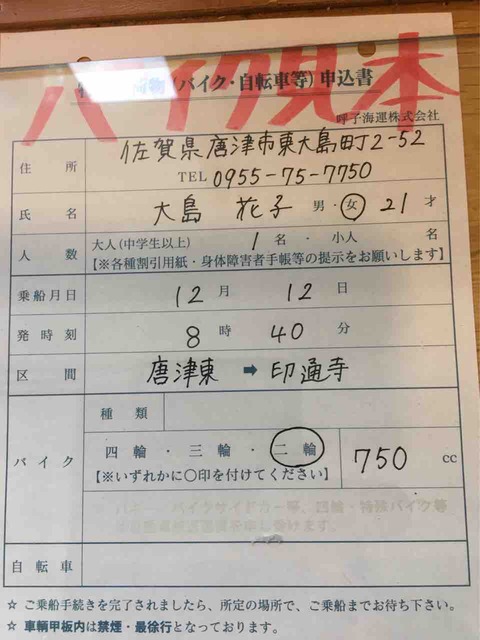 バイク見本
荷物(バイク・自転車等)申込書
呼子海運株式会社
住所 佐賀県唐津市東大島町2-52
TEL 0955-75-7750
氏名 大島 花子 男・女 21才
人数 大人(中学生以上) 1名・小人 名
【※各種割引用紙・身体障害者手帳等の提示をお願いします】
乗船月日 12月 12日
発時刻 8時 40分
区間 唐津東 ➡ 印通寺
種類
バイク 四輪・三輪・二輪 750 cc
【※いずれかに○印を付けてください】
バイクサイドカー等、四輪・特殊バイク等
自転車
☆ ご乗船手続きを完了されましたら、所定の場所で、ご乗船までお待ち下さい。
☆ 車輌甲板内は禁煙・最徐行となっております。